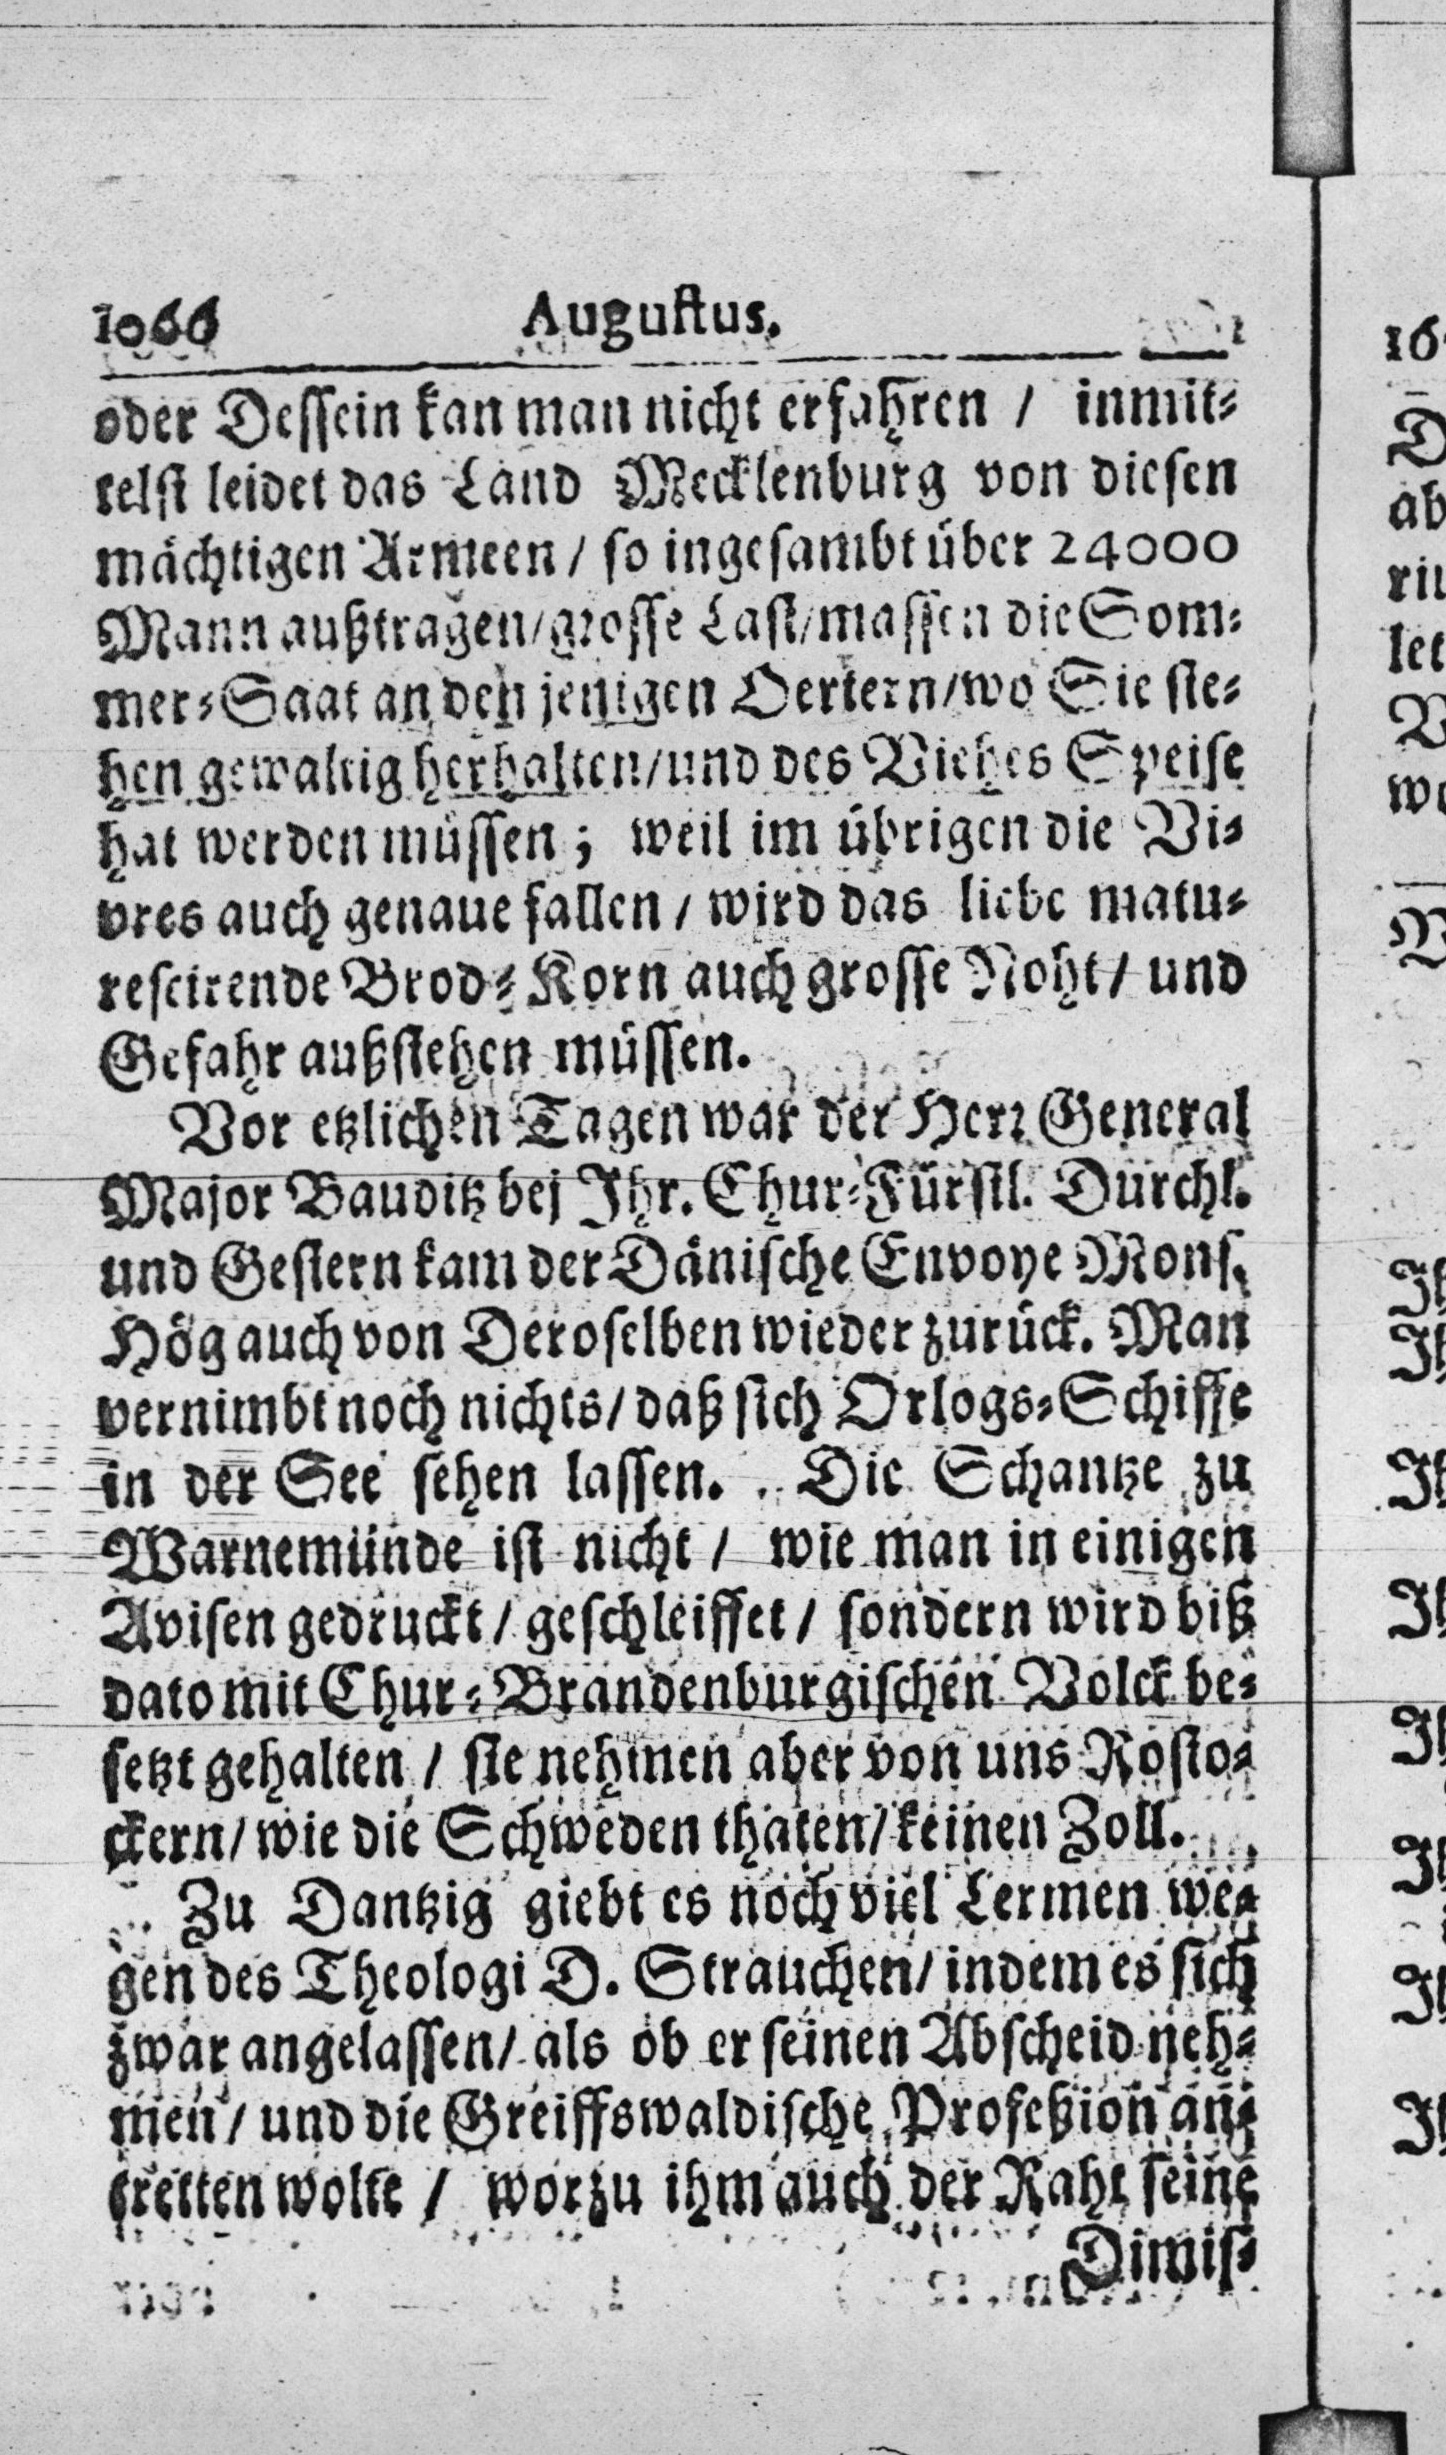 1066 Augustus.
oder Dessein kan man nicht erfahren / inmit-
telst leidet das Land Mecklenburg von diesen
mächtigen Armeen / so ingesambt über 24000
Mann außtragen/grosse Last/massen die Som-
mer-Saat an den jenigen Oertern/wo Sie ste-
hen gewaltig herhalten/und des Viehes Speise
hat werden müssen; weil im übrigen die Vi-
vres auch genaue fallen / wird das liebe matu-
rescirende Brod-Korn auch grosse Noht / und
Gefahr außstehen müssen.
Vor etzlichen Tagen war der Herr General
Major Bauditz bej Ihr. Chur-Fürstl. Durchl.
und Gestern kam der Dänische Envoye Mons.
Hög auch von Deroselben wieder zurück. Man
vernimbt noch nichts/daß sich Orlogs-Schiffe
in der See sehen lassen. Die Schantze zu
Warnemünde ist nicht / wie man in einigen
Avisen gedruckt / geschleiffet / sondern wird biß
dato mit Chur-Brandenburgischen Volck be-
setzt gehalten / sie nehmen aber von uns Rosto-
ckern/wie die Schweden thaten/keinen Zoll.
Zu Dantzig giebt es noch viel Lermen we-
gen des Theologi D. Strauchen/indem es sich
zwar angelassen/ als ob er seinen Abscheid neh-
men / und die Greiffswaldische Profeßion an-
tretten wolte / worzu ihm auch der Raht seine
Dimis-
16
D
ab
let
V
M
Ih
Ih
Ih
Ih
Ih
Ih
Ih
Ih